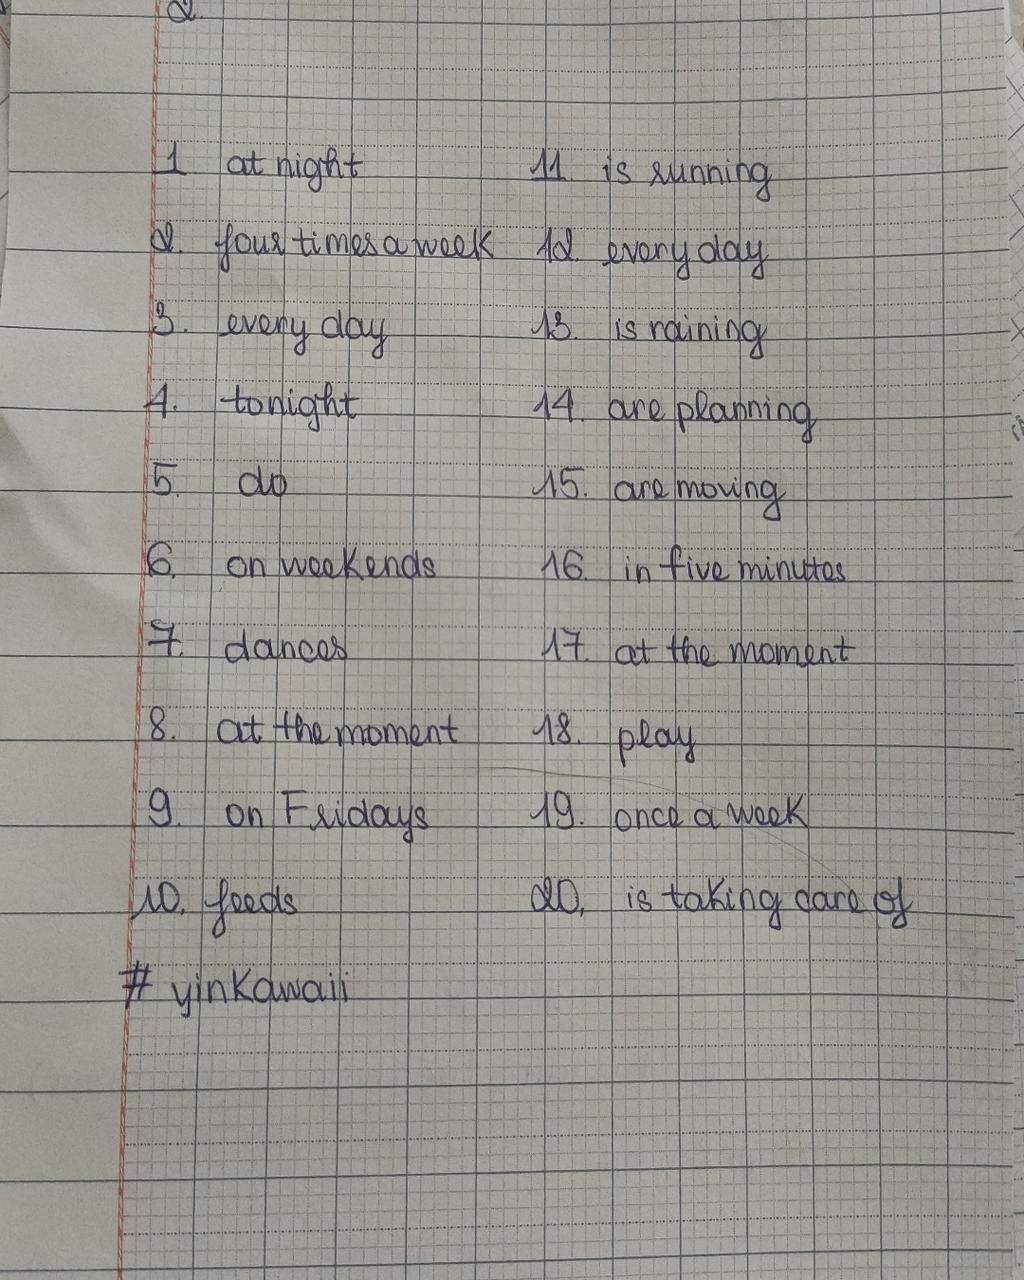 2.
1 at night
2. four times a week
3. every day
4. tonight
5. do
6. on weekends
7. dances
8. at the moment
9. on Fridays
10. feeds
11. is running
12. every day
13. is raining
14. are planning
15. are moving
16. in five minutes
17. at the moment
18. play
19. once a week
20. is taking care of
# yinkawaii